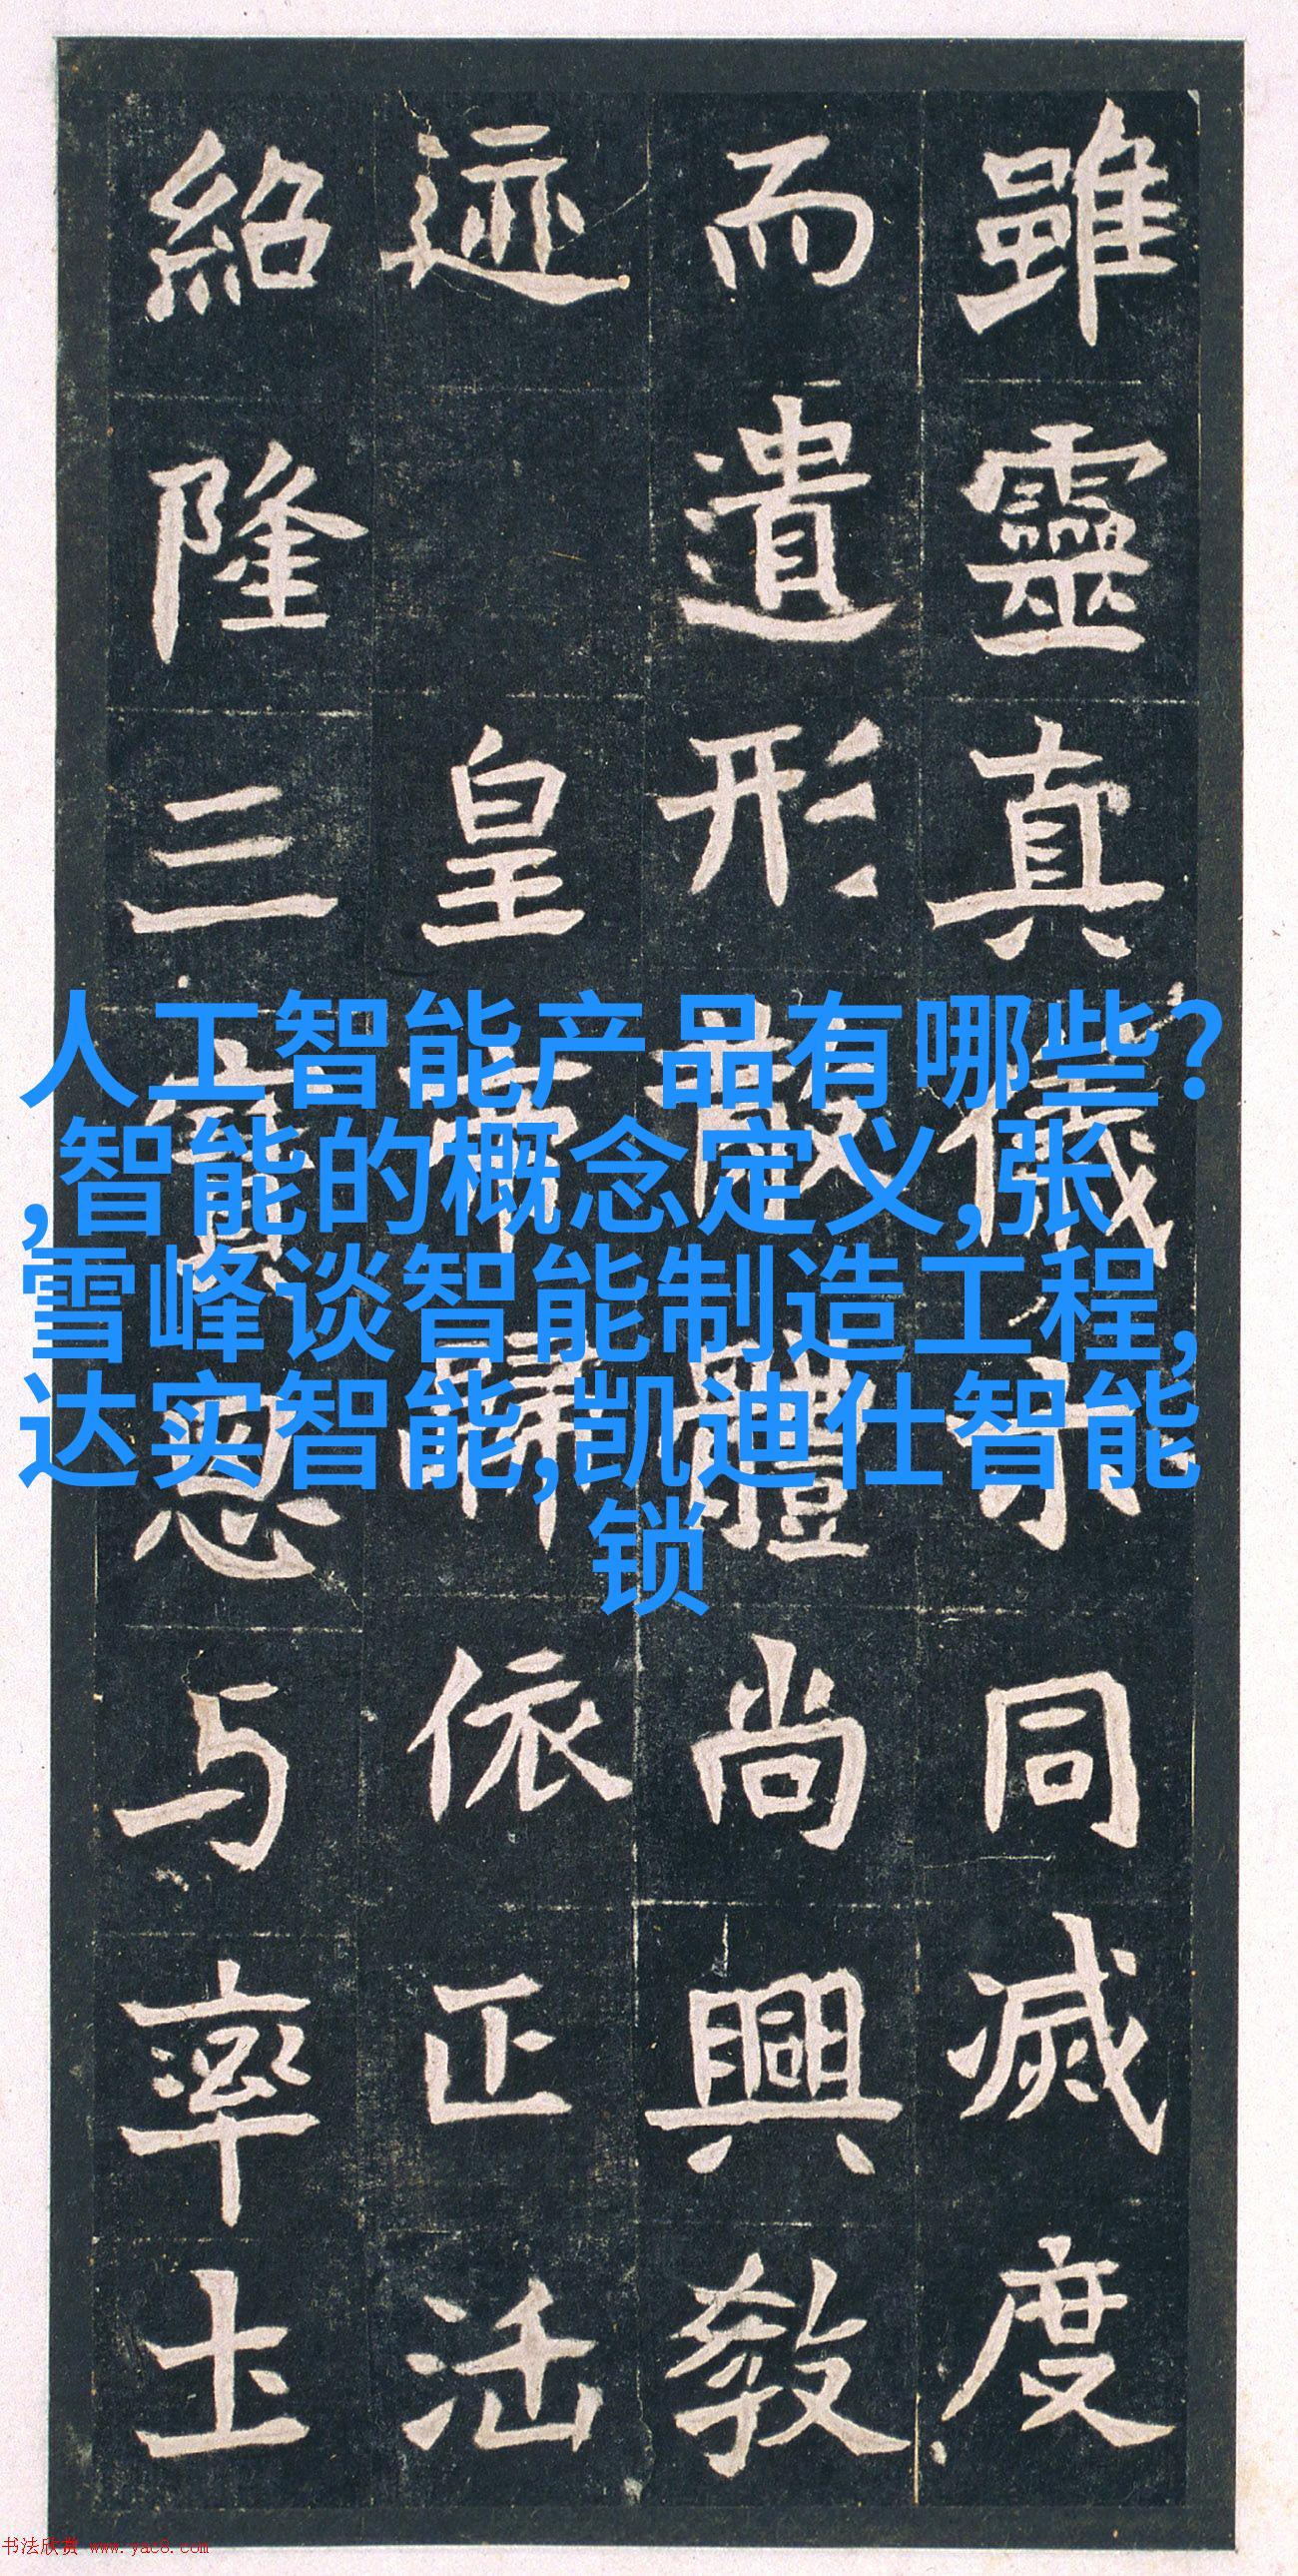 雖靈真儀示同滅度
而遺形散體尚興教
迹 皇帝歸依正法
紹隆三寶思与率土
人工智能产品有哪些?
,智能的概念定义,张
雪峰谈智能制造工程,
达实智能,凯迪仕智能
锁
书法欣赏 www.yac8.com